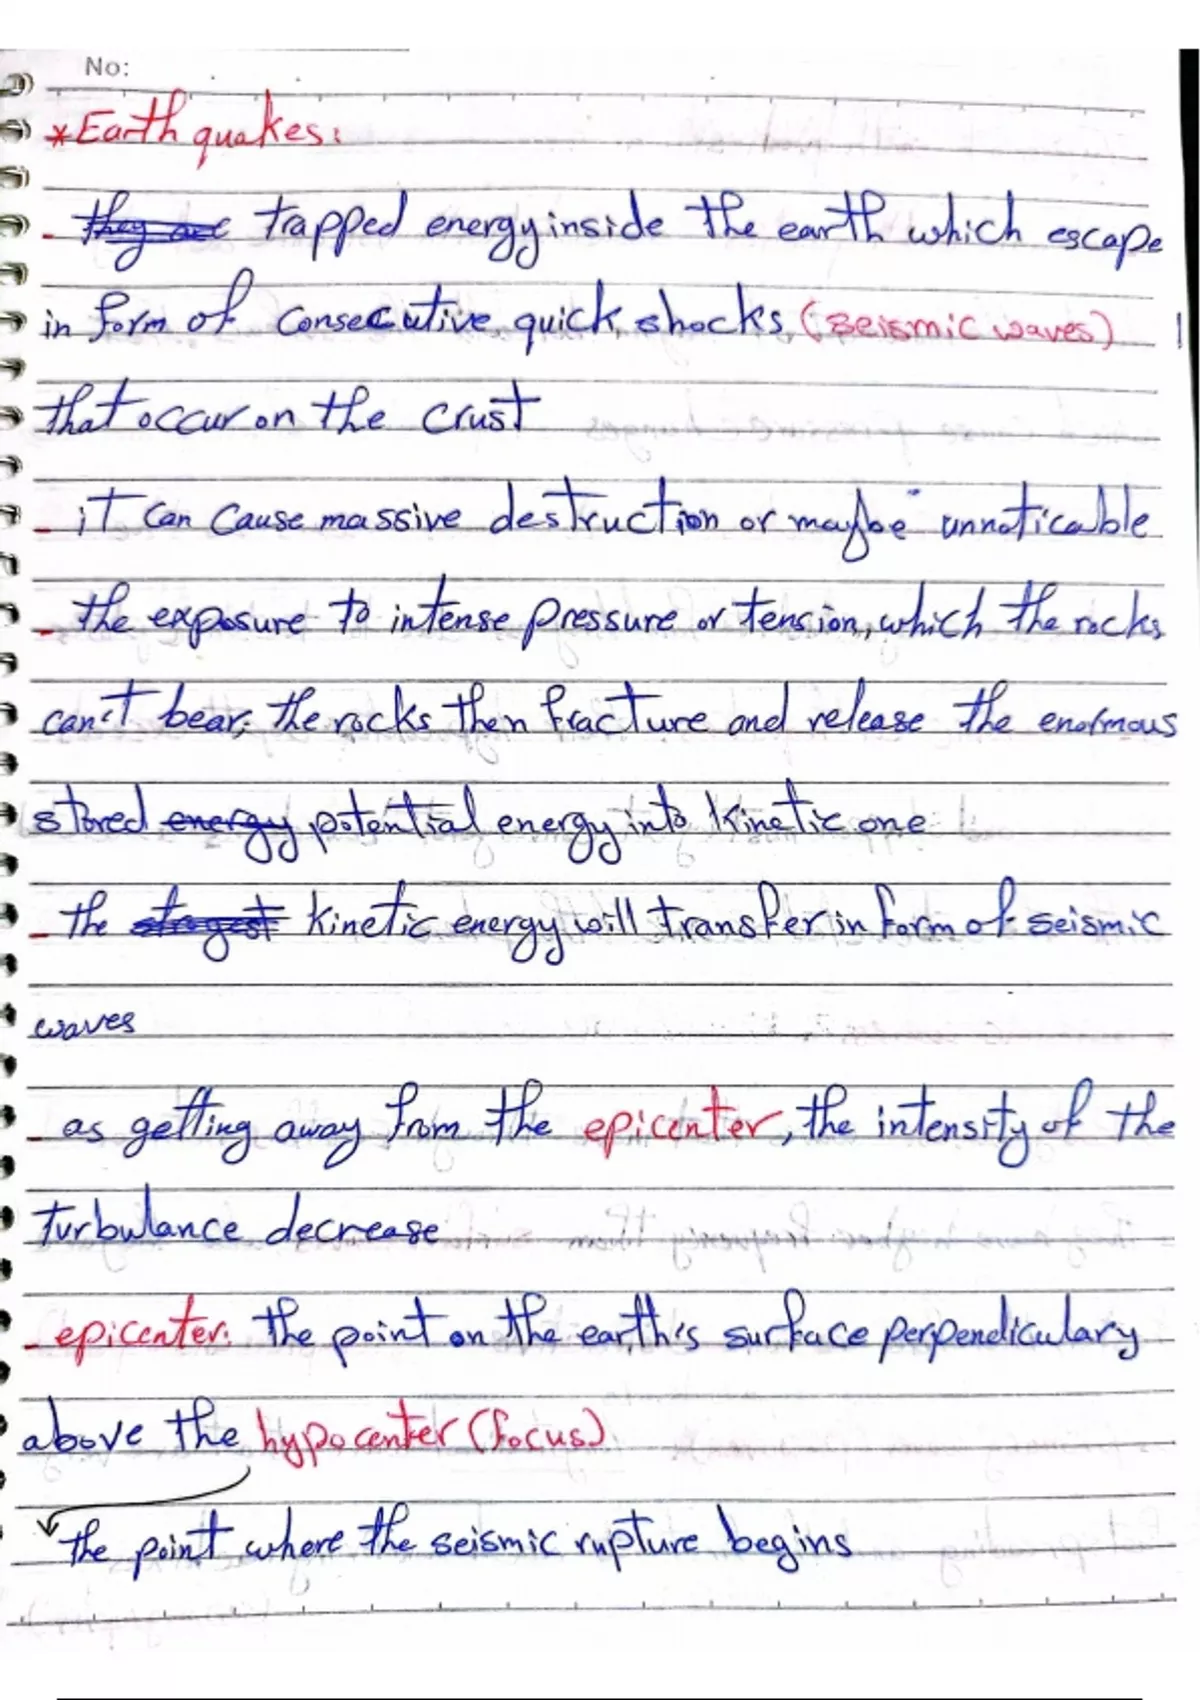 No:
*Earth quakes:
- they are trapped energy inside the earth which escape
in form of consecutive quick shocks (seismic waves)
that occur on the crust
- it can cause massive destruction or maybe unnoticable
- the exposure to intense pressure or tension, which the rocks
can't bear, the rocks then fracture and release the enormous
stored energy potential energy into kinetic one
- the kinetic energy will transfer in form of seismic
waves
- as getting away from the epicenter, the intensity of the
turbulance decrease
- epicenter: the point on the earth's surface perpendiculary
above the hypocenter (focus)
the point where the seismic rupture begins